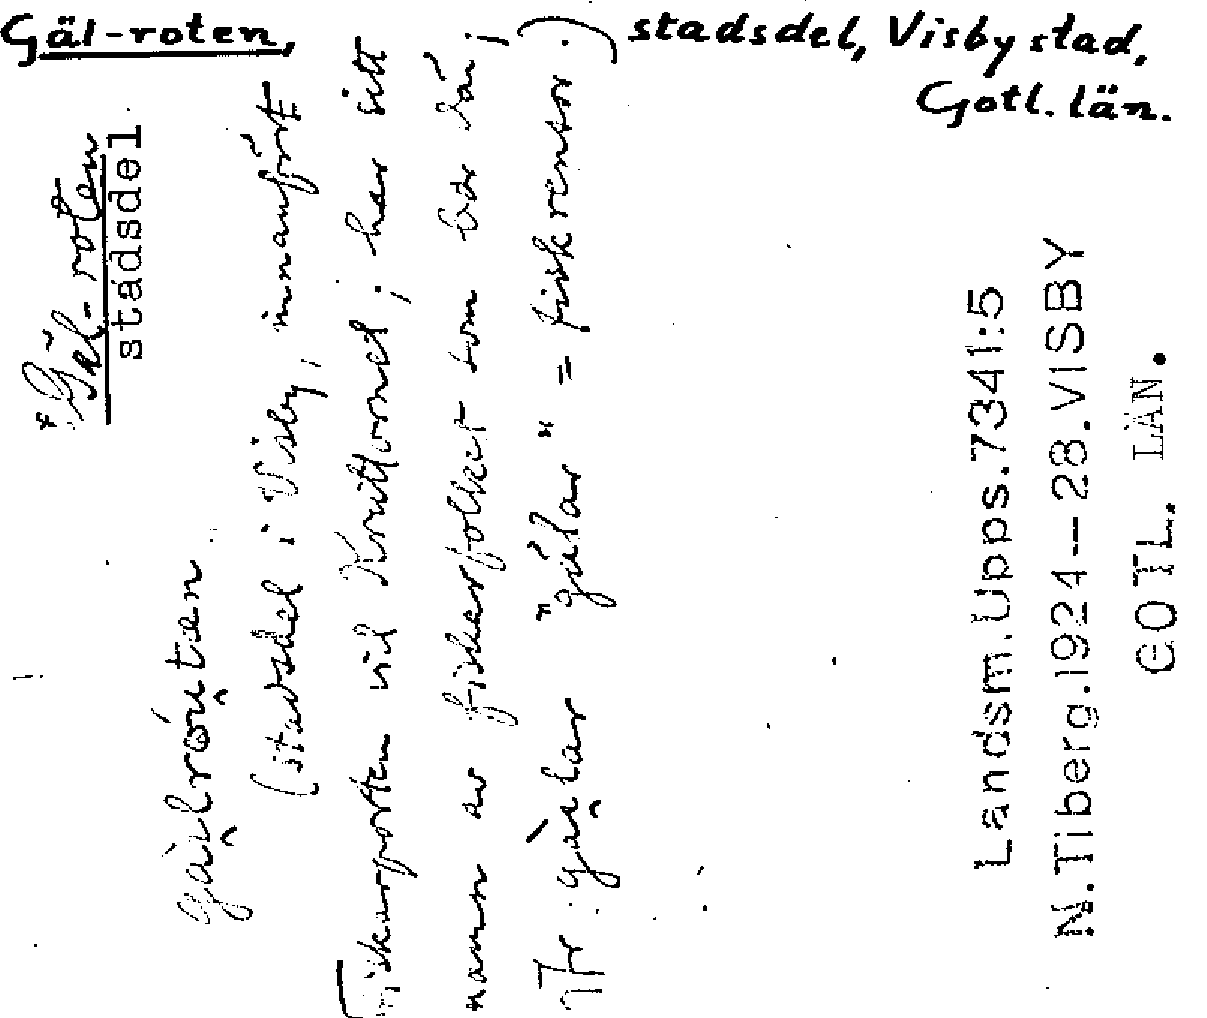 Gäl-roten, stadsdel, Visby stad,
Gotl. län.
*Gäl-roten
stadsdel
(stadsdel i Visby, innanför
Fiskarporten vid Kruttornet; har sitt
namn av fiskarfolket som bor där;
"gälar" = fiskrensor.)
Landsm. Upps. 7341:5
N. Tiberg. 1924–28. VISBY
GOTL. LÄN.